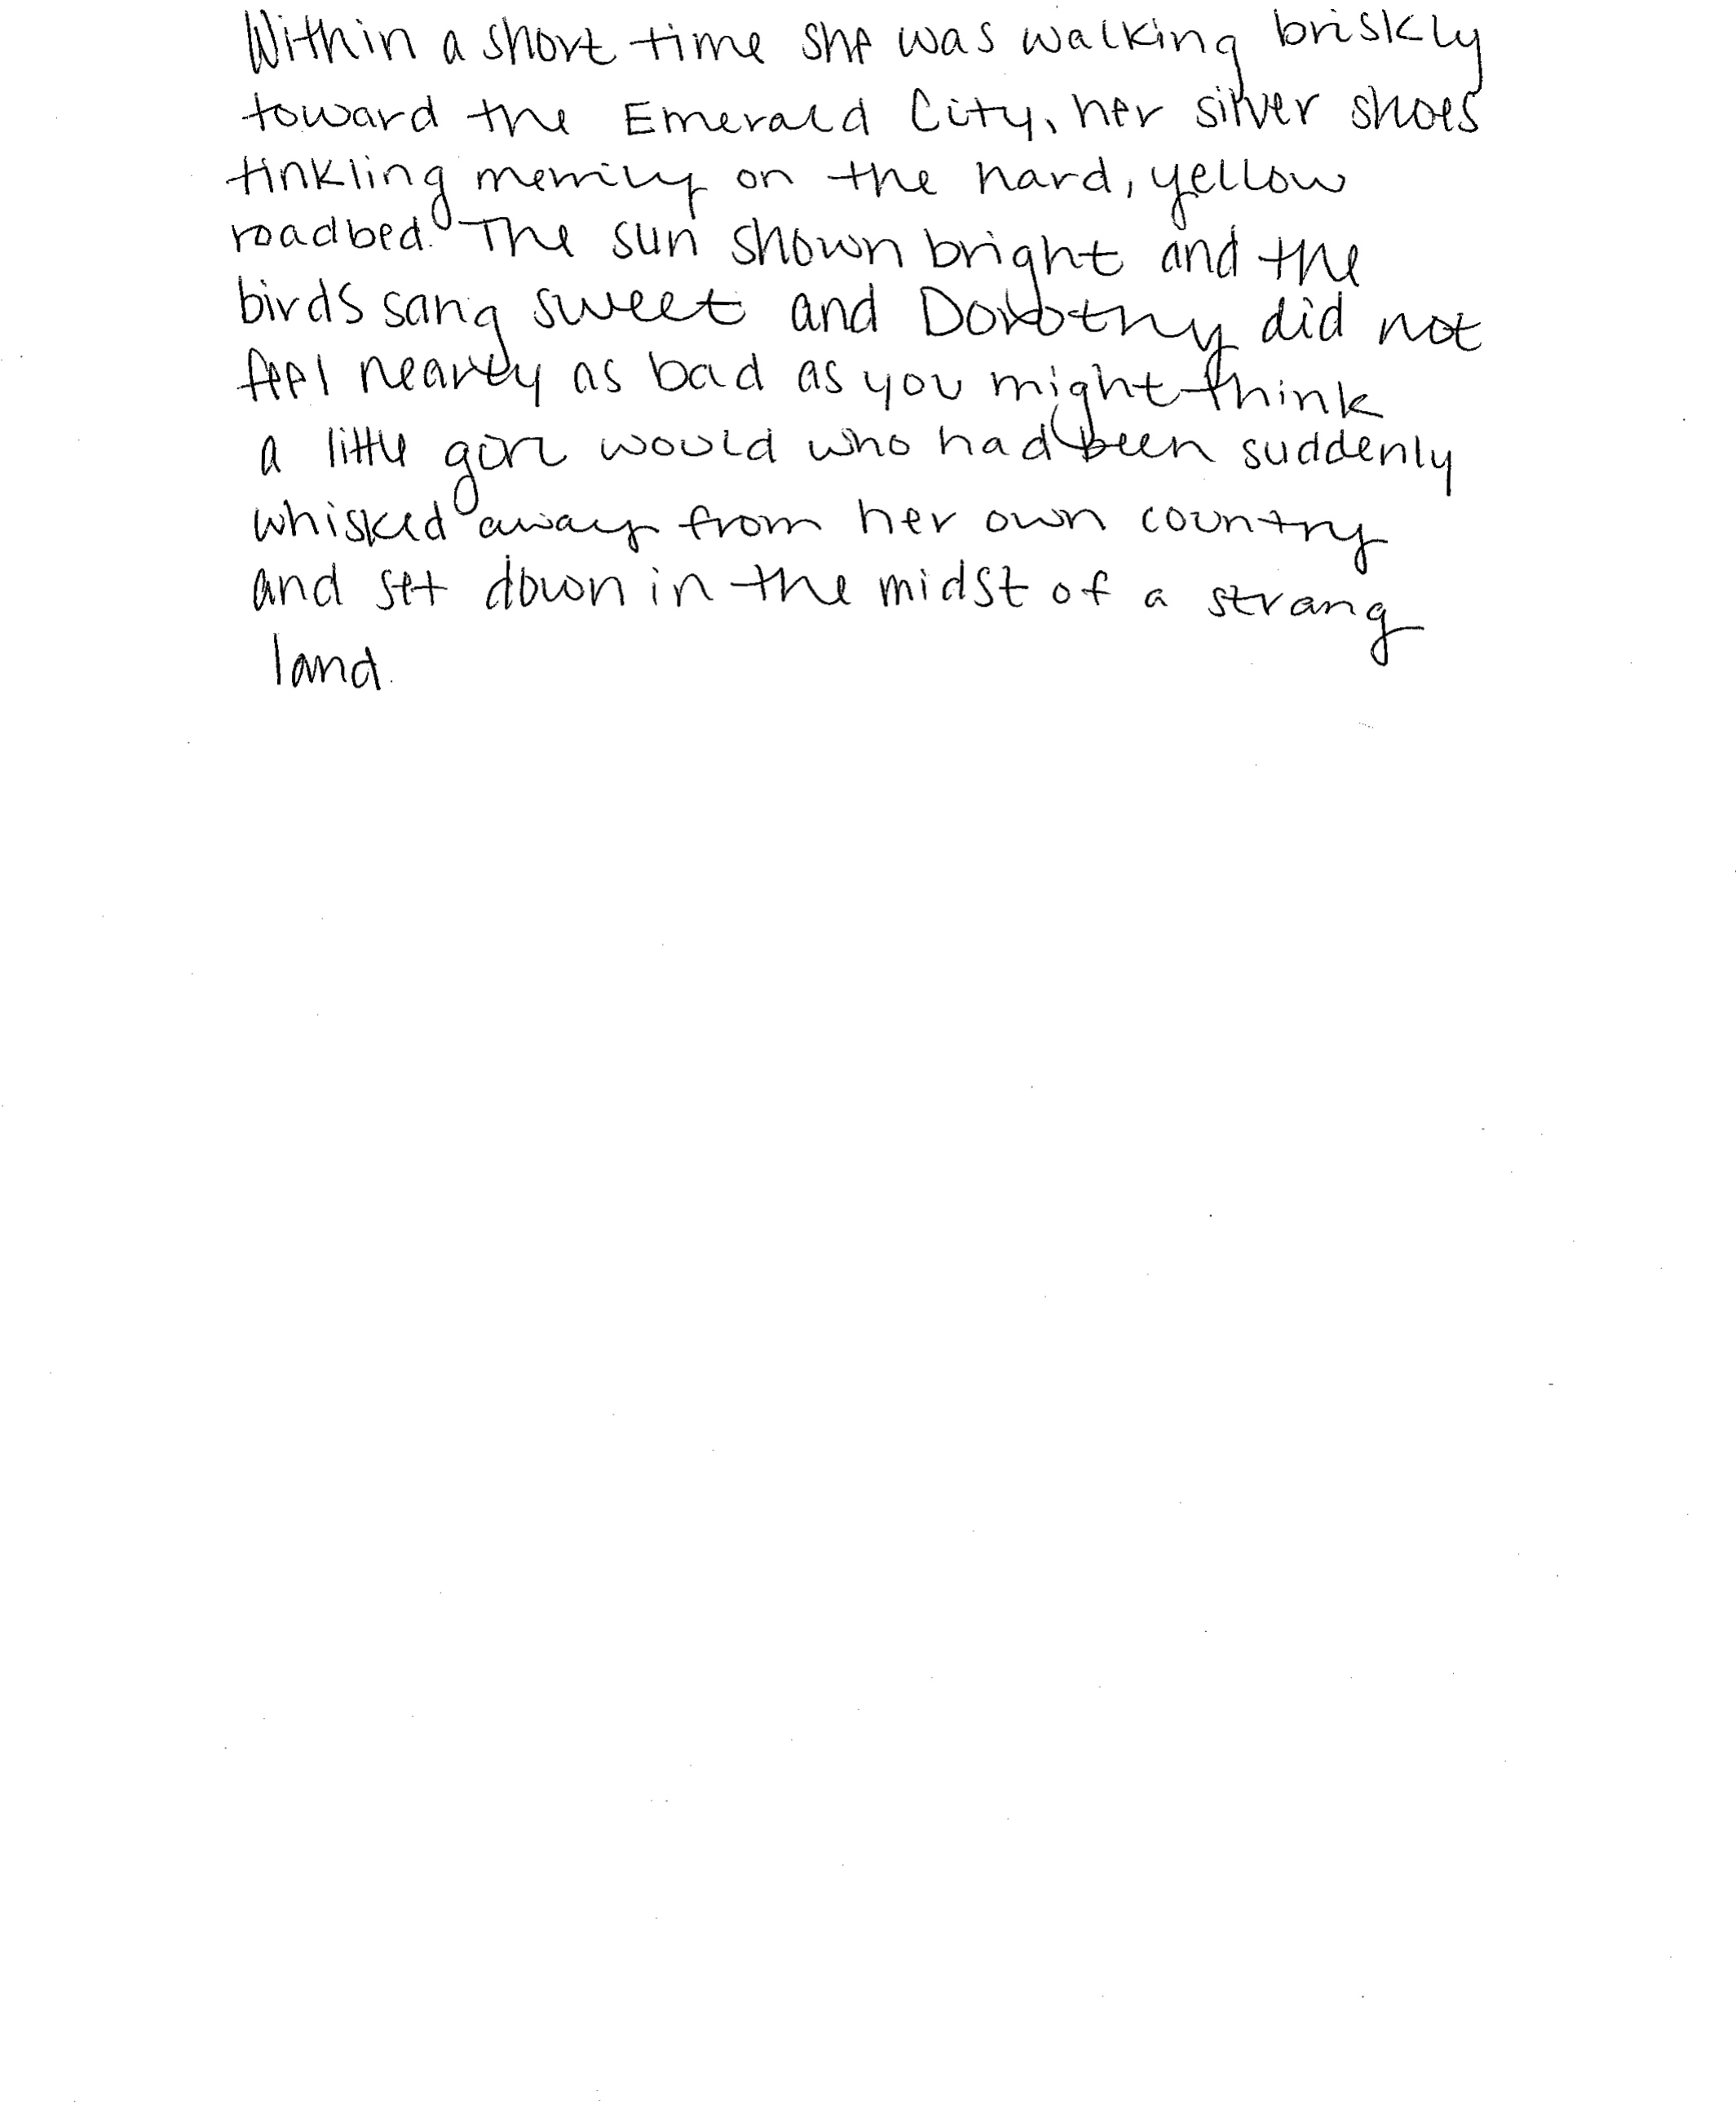 Within a short time she was walking briskly
toward the Emerald City, her silver shoes
tinkling merrily on the hard, yellow
roadbed. The sun shown bright and the
birds sang sweet and Dorothy did not
feel nearly as bad as you might think
a little girl would who had been suddenly
whisked away from her own country
and set down in the midst of a strang
land.